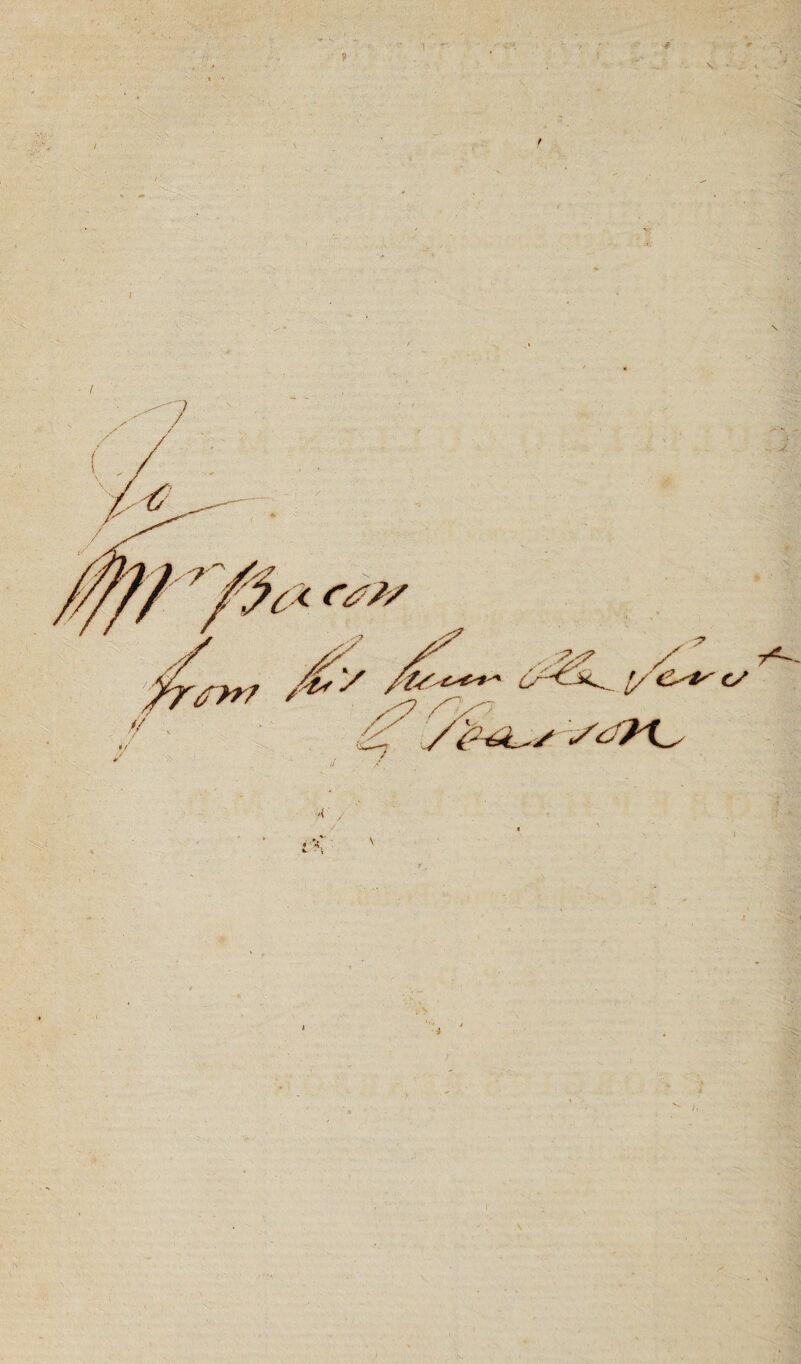 To
Mr Bacon
from his humble Servt
G Pearson